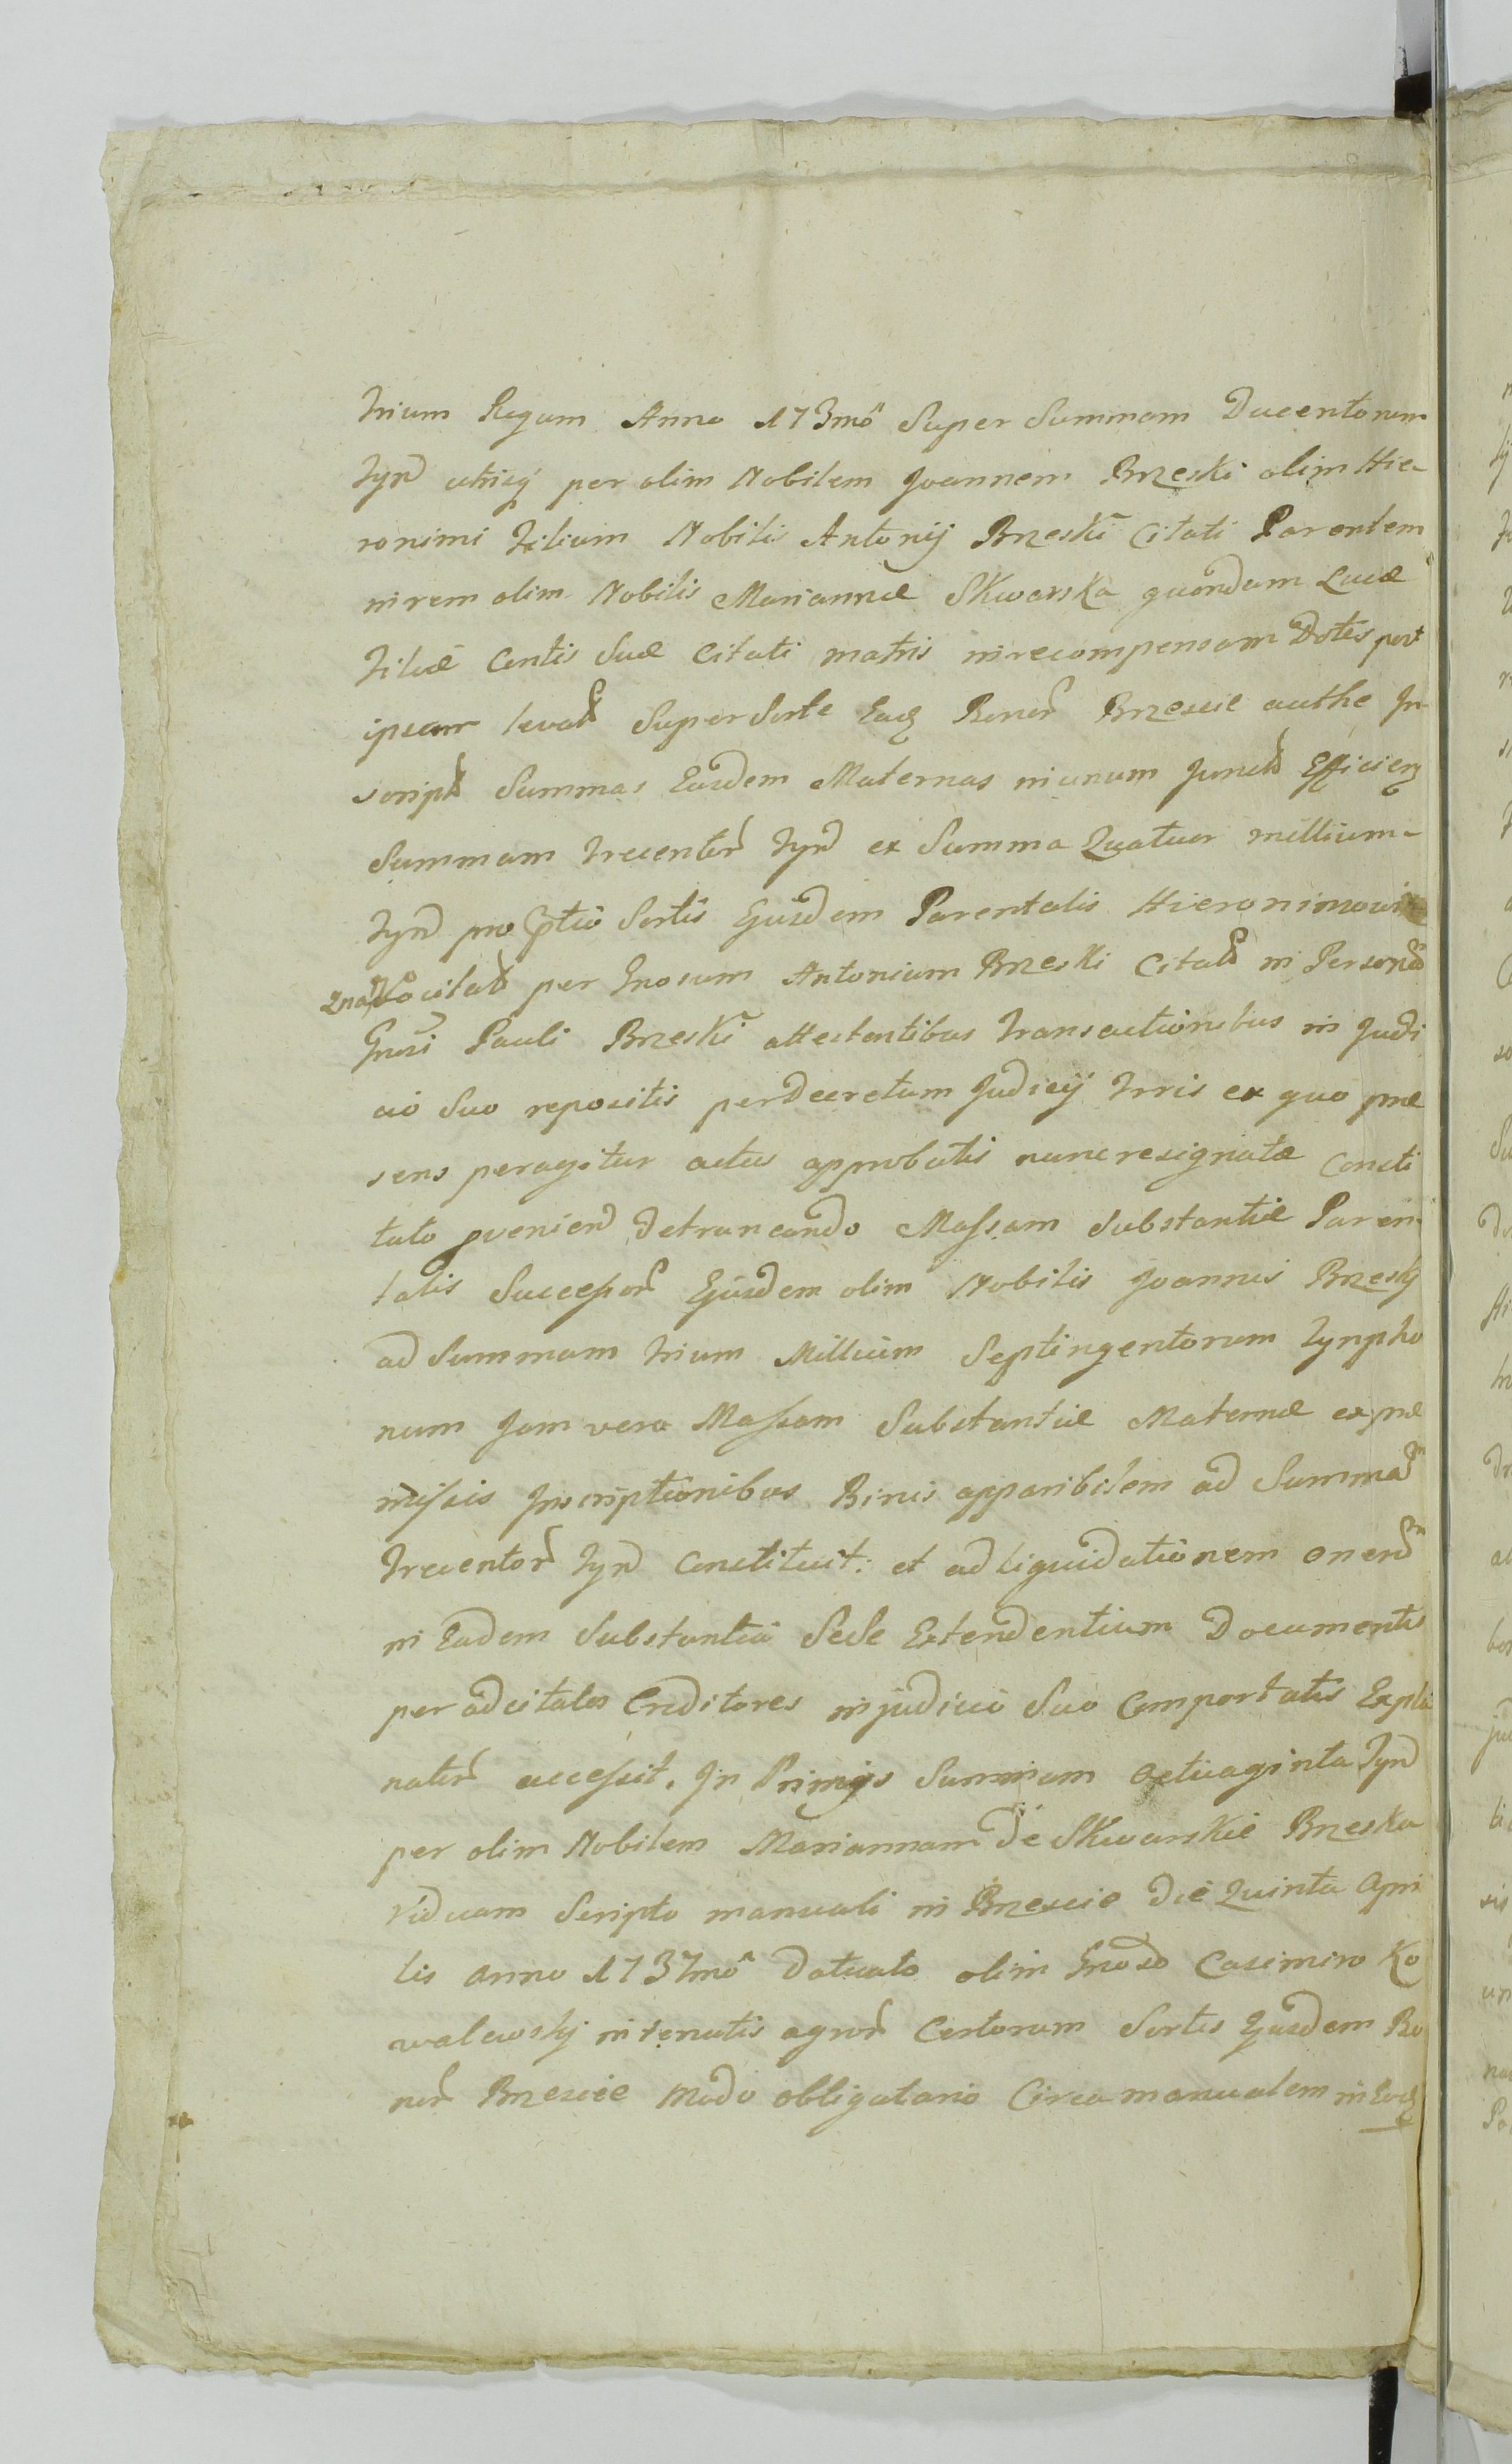 trium Regum Anno 173mo Super Summam Ducentorum
tynd utrisq per olim Nobilem Joannem Brzeski olim Hie-
ronimi Filium Nobilis Antonij Brzeski Citati Parentem
in rem olim Nobilis Mariannæ Skwarska quondam Lucæ
Filiæ Contis Suæ Citati matris in recompensam Dotis post
ipsam levat Super Sorte Eaq Bonor Brzescie authe In-
script Summas Easdem Maternas in unum junct Efficien
Summam trecentor tynd ex Summa Quatuor millium
tynd pro ptio Sortis Ejusdem Parentalis Hieronimowi
per Gnosum Antonium Brzeski Citat in Person
Gnosi Pauli Brzeski attestantibus transactionibus in Judi
cio Suo repositis per Decretum Judicij Trris ex quo præ
sens peragitur actus approbatis nunc resignatæ Consti
tuto pvenien Detruncando Massam Substantiæ Paren
talis Successor Ejusdem olim Nobilis Joannis Brzeskj
ad Summam trium Millium Septingentorum tynpho
num Jam vero Massam Substantiæ Maternæ ex præ
missis Inscriptionibus Binis apparibilem ad Summam
trecentor tynd Constituit: et ad liquidationem onerum
in Eadem Substantia SeSe Extendentium Documentis
per adcitatos Creditores in judicio Suo Comportatis Expla
nator accessit. In Primis Summam octuaginta Tynd
per olim Nobilem Mariannam de Skwarskie Brzeska
Viduam Scripto manuali in Brzescie Die Quinta Apri
lis anno 1737mo Datuato olim Gnoso Casimiro Ko
walewskj in tenutis agror Certorum Sortis Ejusdem Bo
nor Brzescie modo obligatorio Circa manualem in Eoq